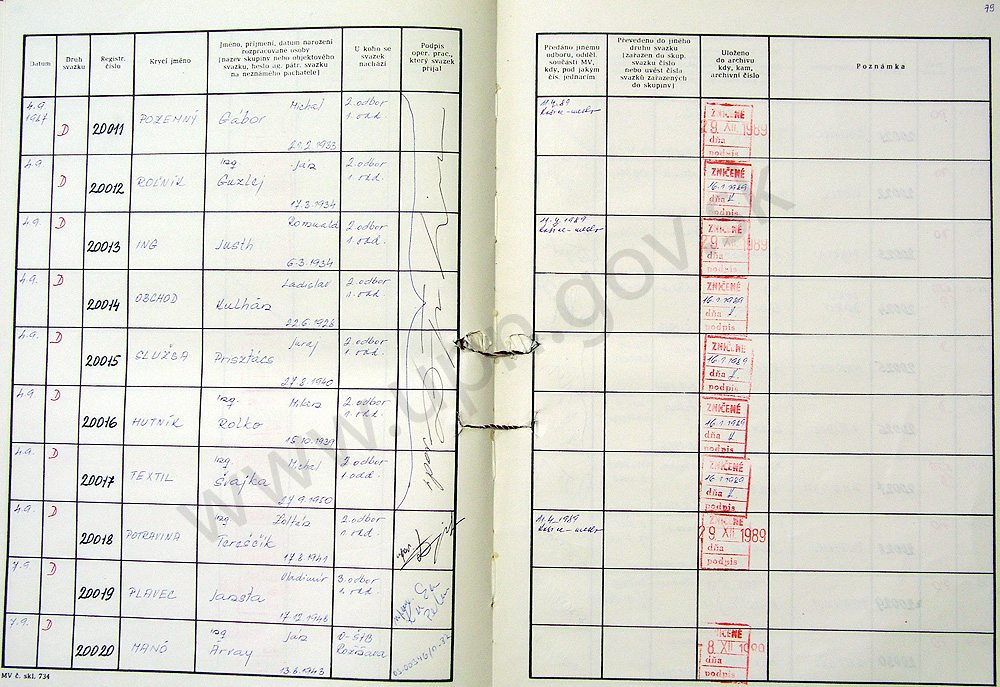 79
Datum
Druh svazku
Registr. číslo
Krycí jméno
Jméno, příjmení, datum narození
rozpracované osoby
(název skupiny nebo objektového
svazku, heslo ag. pátr. svazku
na neznámého pachatele)
U koho se
svazek
nachází
Podpis
oper. prac.,
který svazek
přijal
Předáno jinému
odboru, odděl.
součásti MV,
kdy, pod jakým
čís. jednacím
Převedeno do jiného
druhu svazku
(zařazen do skup.
svazku číslo
nebo uvést čísla
svazků zařazených
do skupiny)
Uloženo
do archivu
kdy, kam,
archivní číslo
Poznámka
4.9. 1987 D 20011 POZEMNÝ Gábor Michal 21.2.1933 2. odbor 1. odd. 11.4.89 ZNIČENÉ 29. XII. 1989 dňa podpis
4.9. D 20012 ROĽNÍK Ing Guzlej Ján 17.3.1934 2. odbor 1. odd. ZNIČENÉ 16.1.1989 dňa podpis
4.9. D 20013 ING Justh Romuald 6.3.1934 2. odbor 1. odd. 11.4.1989 ZNIČENÉ 29. XII. 1989 dňa podpis
4.9. D 20014 OBCHOD Kulhán Ladislav 22.6.1926 2. odbor 1. odd. ZNIČENÉ 16.1.1989 dňa podpis
4.9. D 20015 SLUŽBA Prisztács Juraj 27.8.1940 2. odbor 1. odd. ZNIČENÉ 16.1.1989 dňa podpis
4.9 D 20016 HUTNÍK Ing. Rolko Milan 15.10.1939 2. odbor 1. odd. ZNIČENÉ 16.1.1989 dňa podpis
4.9. D 20017 TEXTIL Ing Svajka Michal 27.9.1950 2. odbor 1. odd. ZNIČENÉ 16.1.1989 dňa podpis
4.9. D 20018 POTRAVINA Ing Tereščík Zoltán 17.8.1941 2. odbor 1. odd. 11.4.1989 ZNIČENÉ 29. XII. 1989 dňa podpis
7.9. D 20019 PLAVEC Vladimír 17.12.1946 3. odbor 1. odd.
7.9. D 20020 MANÓ Ing Árvay Ján 13.8.1943 O-ŠtB Rožňava ZNIČENÉ 8. XII. 1989 dňa podpis
MV č. skl. 734
www.upn.gov.sk